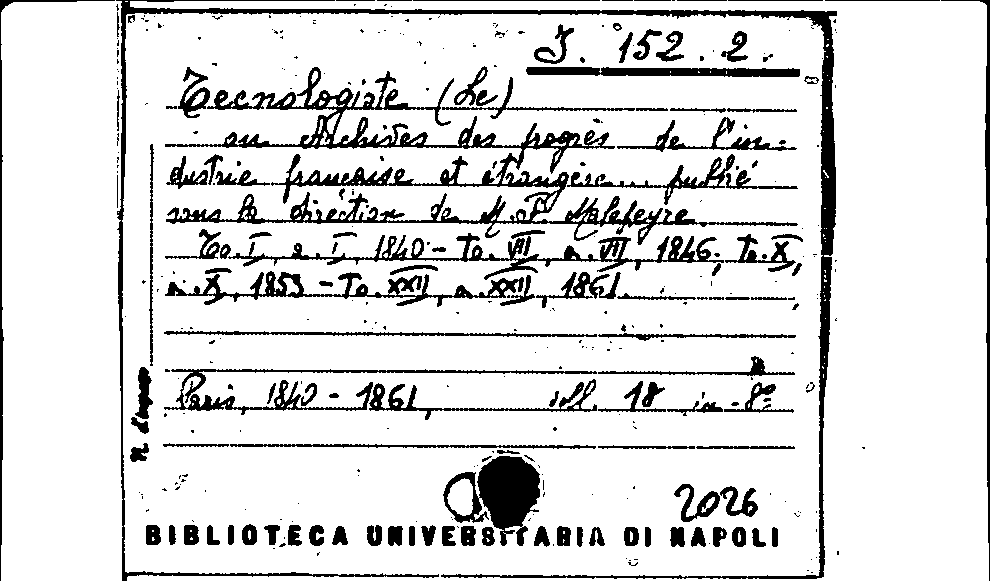 J. 152. 2.
Tecnologiste (Le)
ou Archives des progrès de l'in=
dustrie française et étrangère... publié
sous la direction de M. F. Malefeyre
To. I, a. I, 1840 - To. VII, a. VII, 1846; To. X,
a. X, 1853 - To. XXII, a. XXII, 1861.
Paris, 1840 - 1861, ill. 18 in-8º
N. d'ingresso
2026
BIBLIOTECA UNIVERSITARIA DI NAPOLI